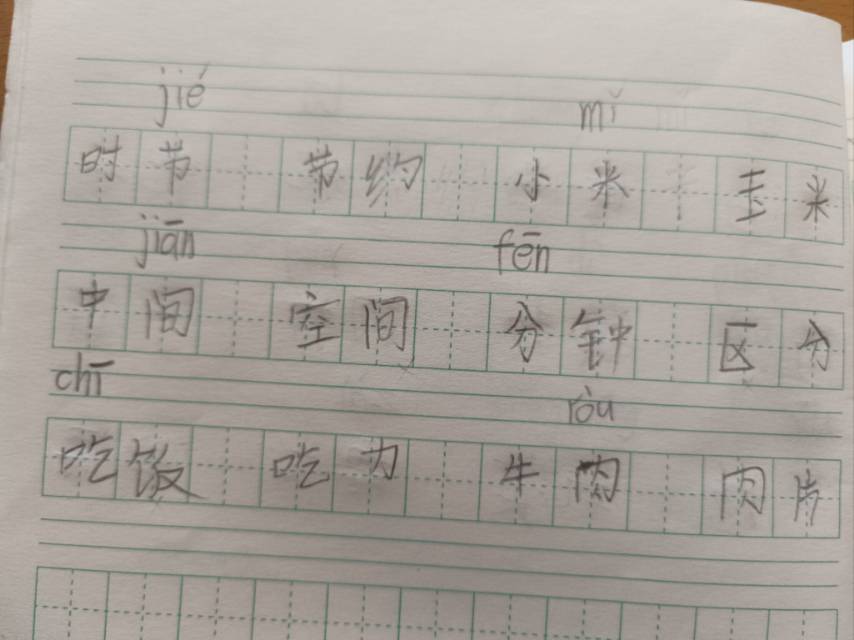 jié mǐ
时节 节约 小米 玉米
jiān fēn
中间 空间 分钟 区分
chī ròu
吃饭 吃力 牛肉 肉片